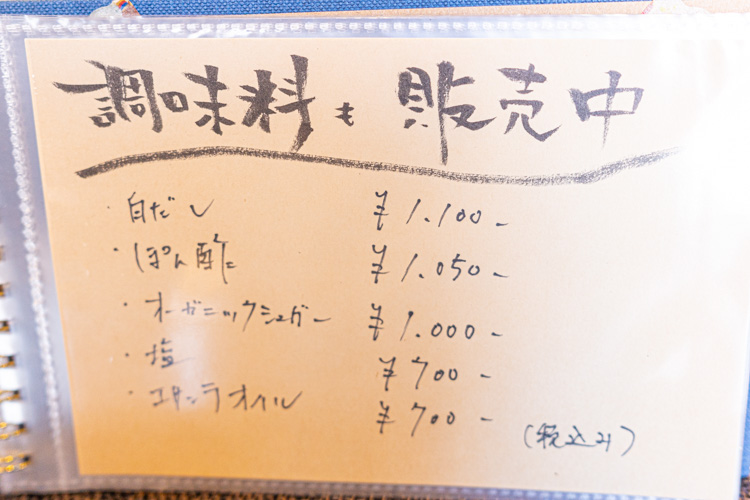 調味料も販売中
・白だし ¥1.100-
・ぽん酢 ¥1.050-
・オーガニックシュガー ¥1.000-
・塩 ¥700-
・エキストラオイル ¥700-
(税込み)